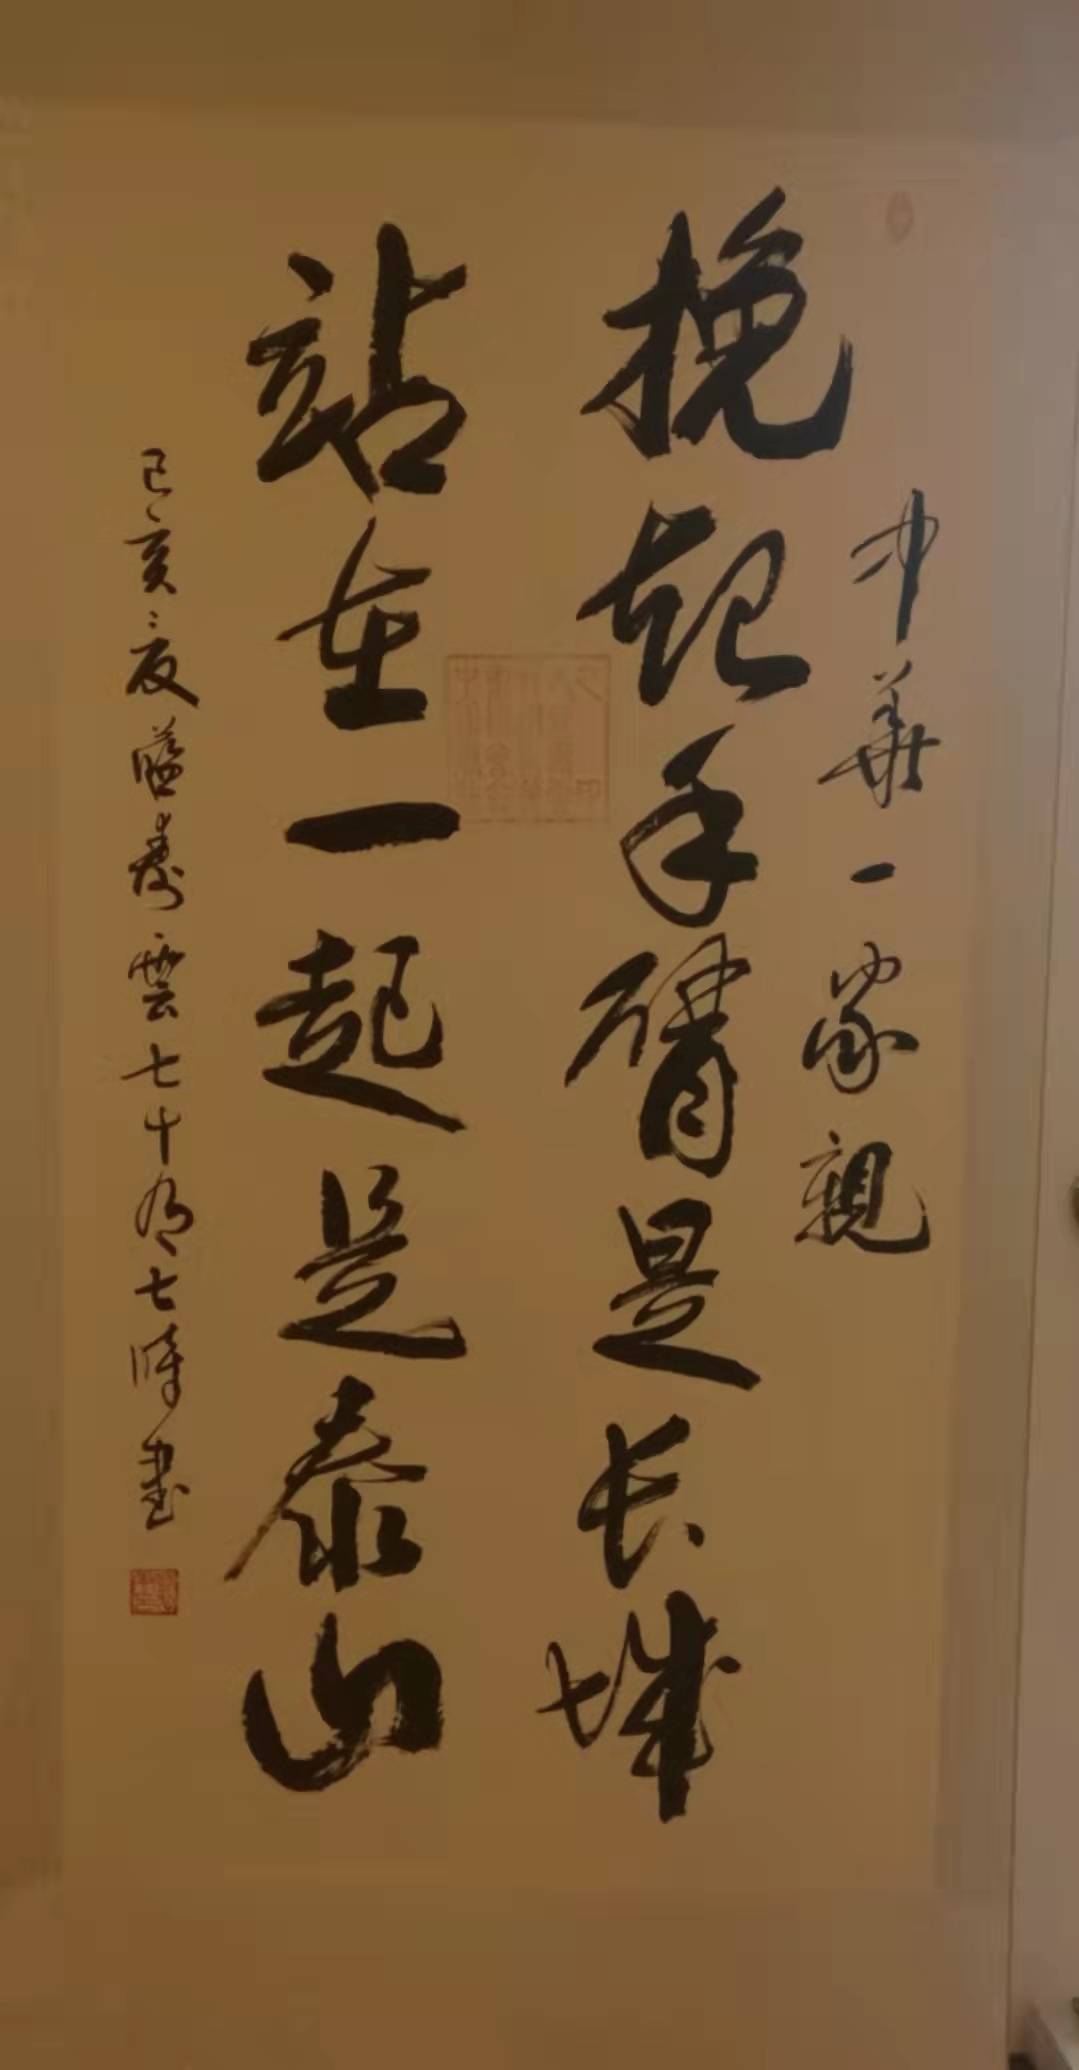 中華一家親
挽起手臂是长城
站在一起是泰山
己亥之夏 壽雲七十有七時書